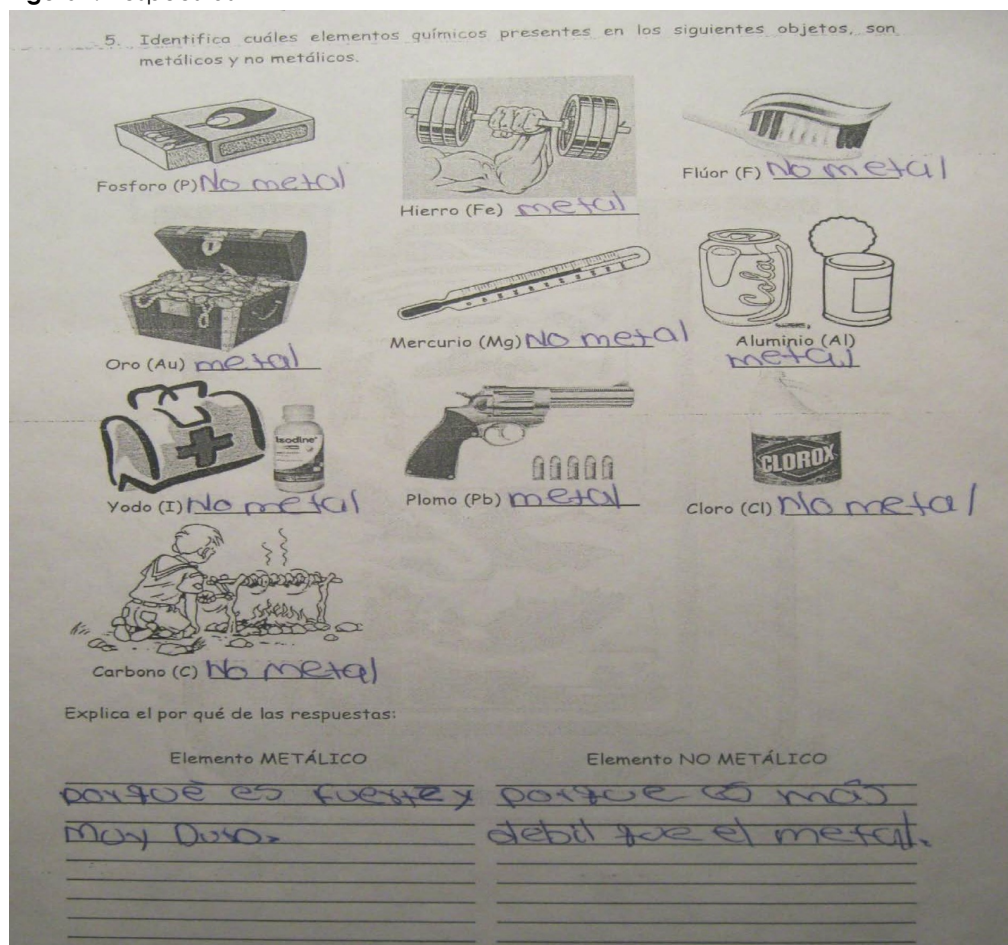 5. Identifica cuáles elementos químicos presentes en los siguientes objetos, son
metálicos y no metálicos.
Fosforo (P) No metal
Hierro (Fe) metal
Flúor (F) No metal
Oro (Au) metal
Mercurio (Mg) No metal
Cola
Aluminio (Al)
metal
Isodine
Yodo (I) No metal
Plomo (Pb) metal
CLOROX
Cloro (Cl) No metal
Carbono (C) No metal
Explica el por qué de las respuestas:
Elemento METÁLICO
porquè es fuerte y
muy Duro.
Elemento NO METÁLICO
porque es más
debil que el metal.